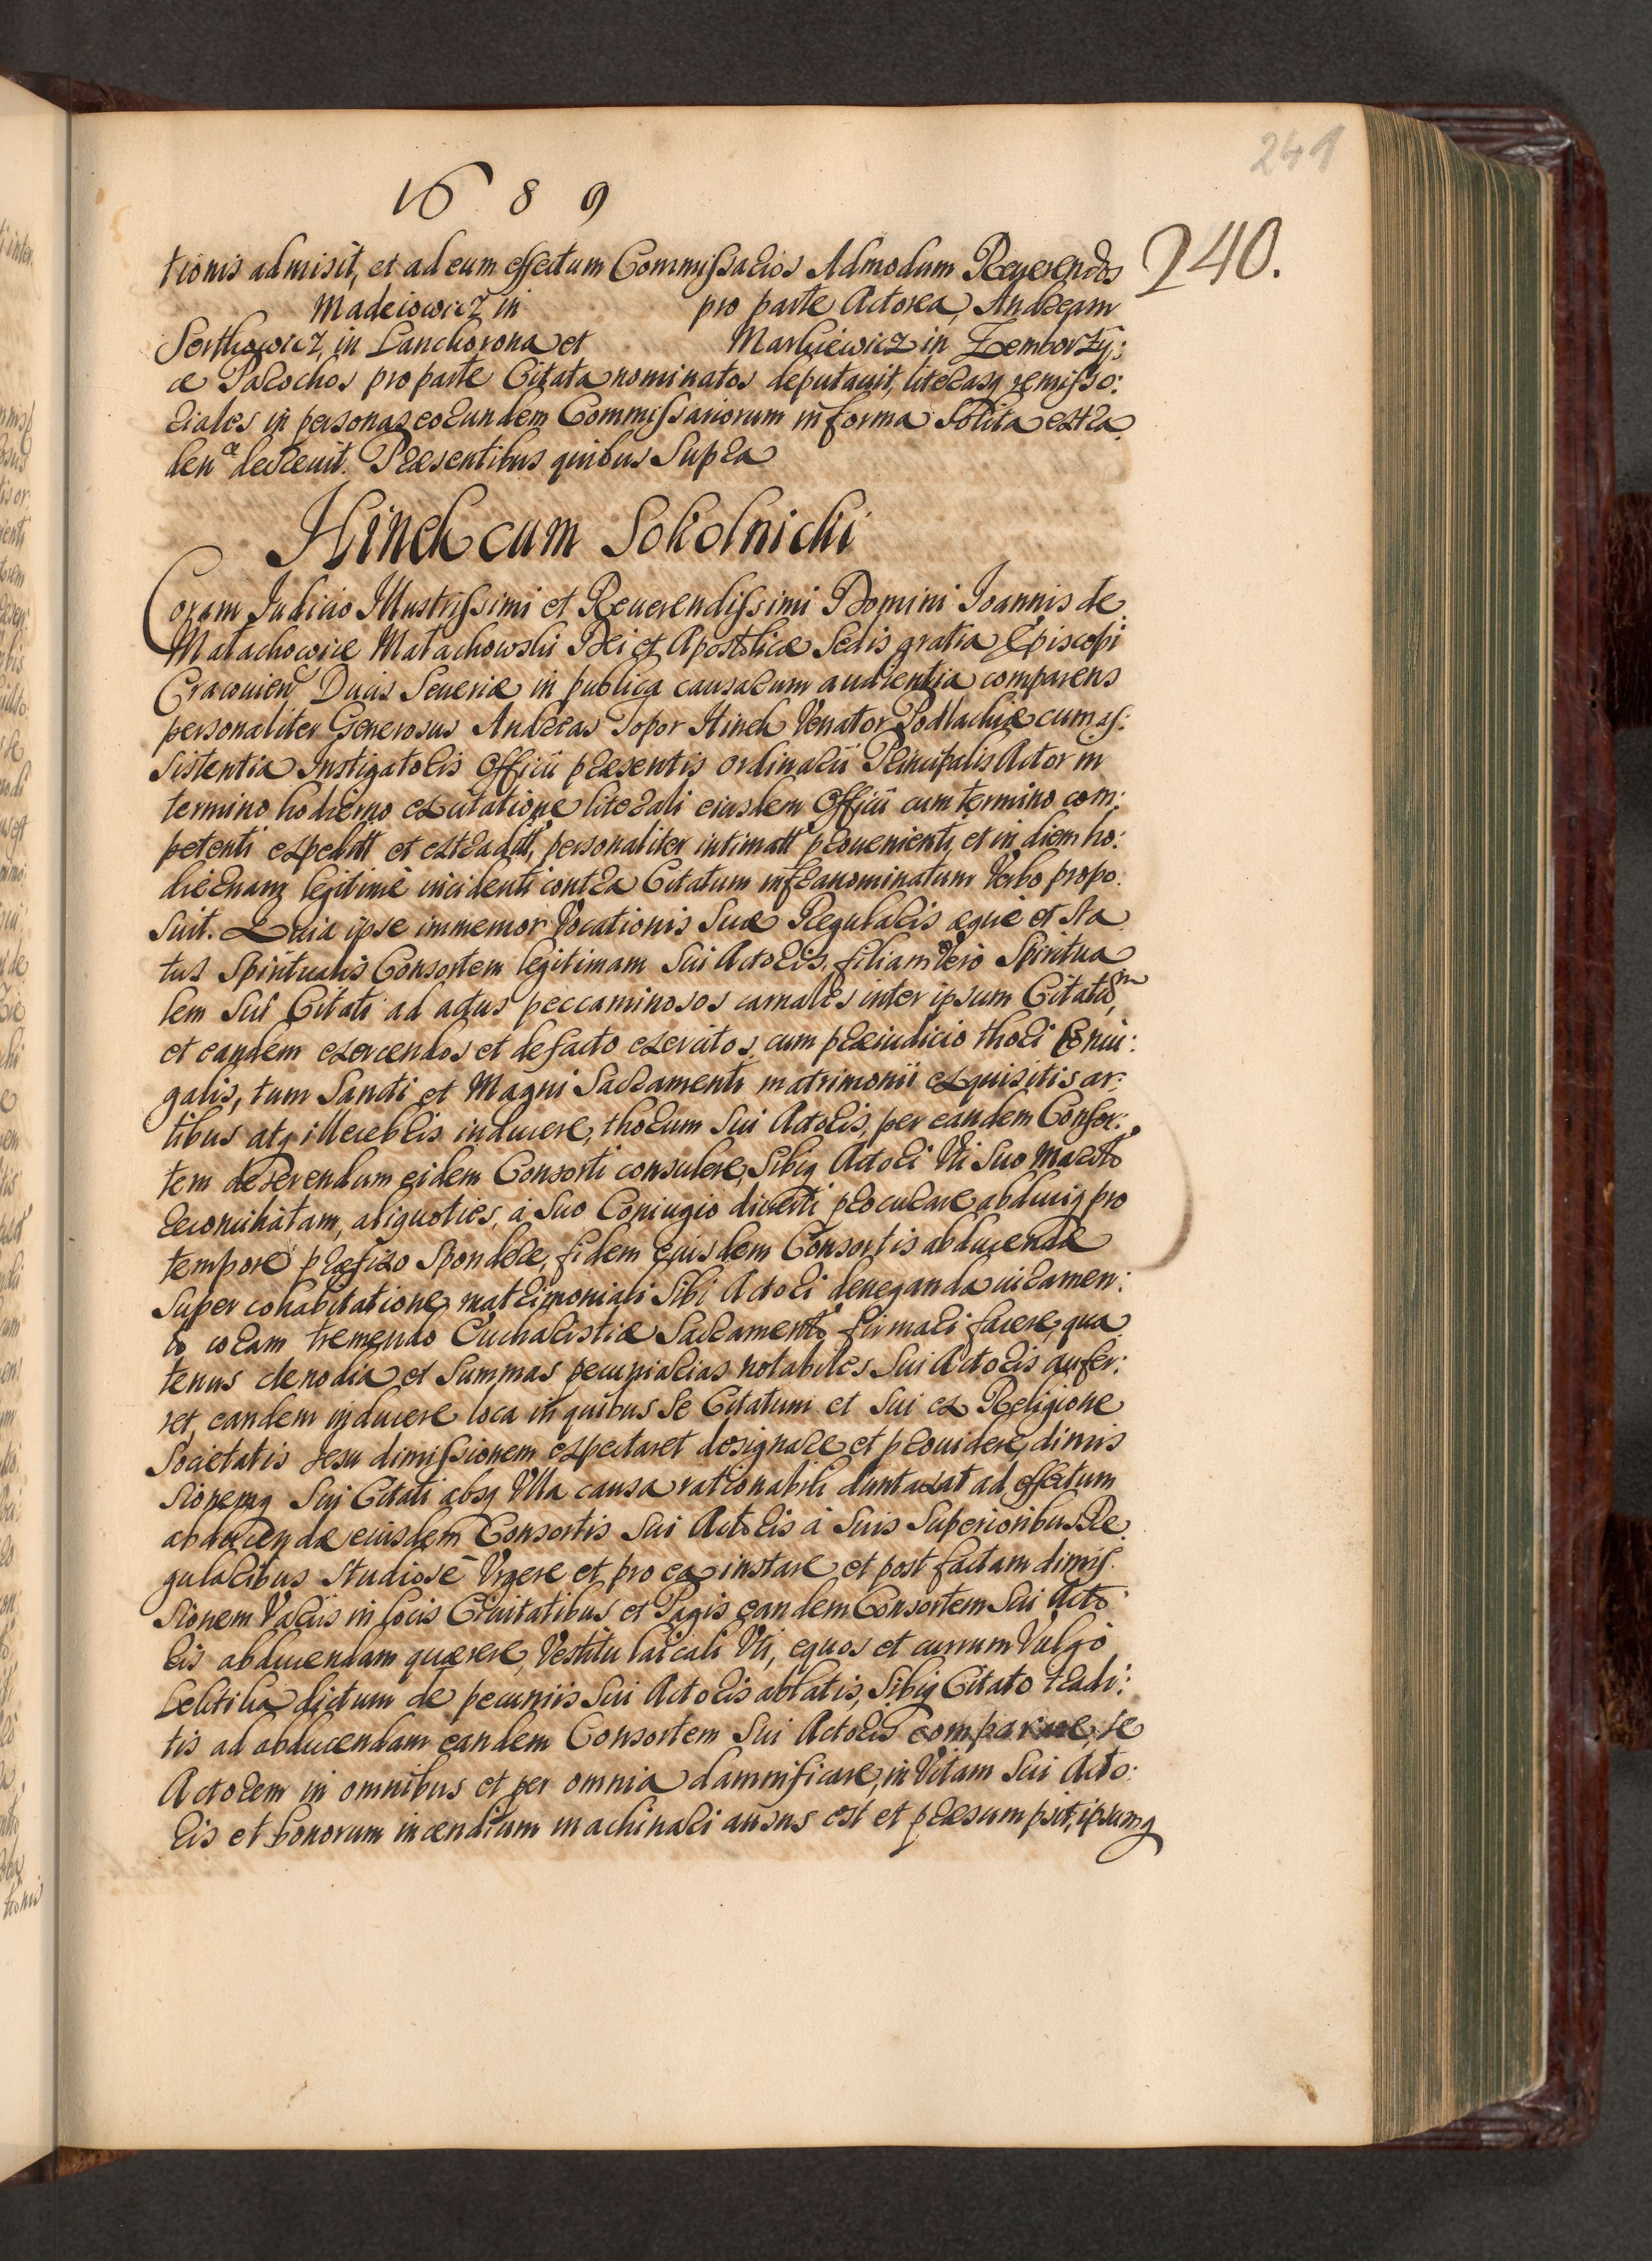 241
1689
240.
tionis admisit, et ad eum effectum Commissarios Admodum Reuerendos
Madeiowicz in pro parte Actorea, Andream
Serthowicz in Lanckorona et Markiewicz in Zemborzy:
ce Parochos pro parte Citata nominatos deputauit, literasq remisso:
riales in personas eorundem Commissariorum in forma solita extra
den͠ decreuit. Præsentibus quibus Supra
Hinek cum Sokolnicki
Coram Iudicio Illustrissimi et Reuerendissimi Domini Ioannis de
Małachowice Małachowski Dei et Apostolicæ Sedis gratia Episcopi
Cracouien͠ Ducis Seueriæ in publica causarum audientia comparens
personaliter Generosus Andreas Topor Hinek Venator Podlachiæ cum as:
sistentia Instigatoris Officii præsentis ordinarii Principalis Actor in
termino hodierno ex citatione literali eiusdem Officii cum termino com:
petenti expedītt et extradītt, personaliter intimatt prouenienti, et in diem ho:
diernam legitime incidenti contra Citatum infranominatum Verbo propo:
suit. Quia ipse immemor Vocationis Suæ Regularis æque et Sta
tus Spiritualis Consortem legitimam Sui Actoris, filiam Vero Spiritua
lem Sui Citati ad actus peccaminosos carnales inter ipsum Citatum
et eandem exercendos et de facto exercitos, cum præiudicio thori Coniu:
galis, tum Sancti et Magni Sacramenti matrimonii exquisitis ar:
tibus atq illecebris inducere, thorum Sui Actoris, per eandem Consor:
tem deserendum eidem Consorti consulere, Sibiq Actori Vti Suo Marito
reconciliatam, aliquoties, à Suo Coniugio diuerti procurare abduciq pro
tempore præfixo Spondere, fidem eiusdem Consortis abducendæ
Super cohabitatione matrimoniali Sibi Actori deneganda iuramen:
to coram tremendo Eucharistiæ Sacramento firmari facere, qua
tenus clenodia et Summas pecuniarias notabiles Sui Actoris aufer:
ret, eandem inducere loca in quibus Se Citatum et Sui ex Religione
Societatis Jesu dimissionem expectaret designare et prouidere, dimis
sionemq Sui Citati absq Vlla causa rationabili duntaxat ad effectum
abducendæ eiusdem Consortis Sui Actoris à Suis Superioribus Re
gularibus Studiosè Vrgere et pro ea instare et post factam dimis:
sionem Variis in locis Ciuitatibus et Pagis eandem Consortem Sui Acto
ris abducendam quærere, Vestitu laicali Vti, equos et currum Vulgo
dictum de pecuniis Sui Actoris ablatis, Sibiq Citato tradi:
tis ad abducendam eandem Consortem Sui Actoris comparare, se
Actorem in omnibus et per omnia damnificare, in Vitam Sui Acto:
ris et bonorum incendium machinari ausus est et præsumpsit, ipsumq